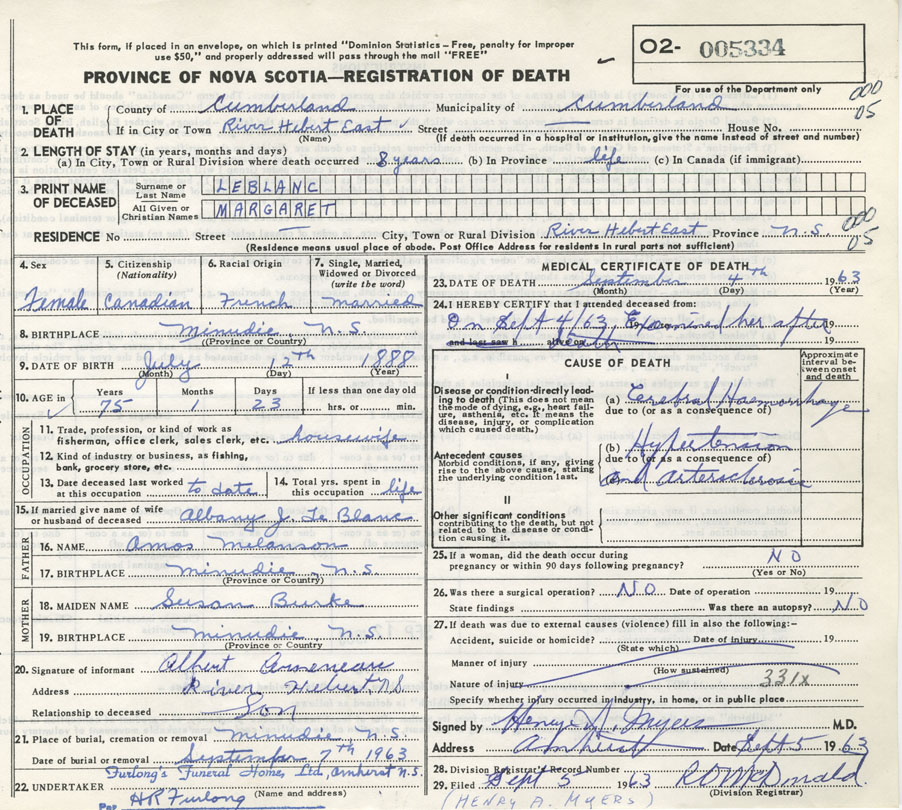 This form, if placed in an envelope, on which is printed "Dominion Statistics—Free, penalty for improper
use $50," and properly addressed will pass through the mail "FREE"
O2- 005334
PROVINCE OF NOVA SCOTIA—REGISTRATION OF DEATH
For use of the Department only
1. PLACE OF DEATH
County of Cumberland Municipality of Cumberland 000 05
If in City or Town River Hebert East Street House No.
(If death occurred in a hospital or institution, give the name instead of street and number)
2. LENGTH OF STAY (in years, months and days)
(a) In City, Town or Rural Division where death occurred 8 years (b) In Province life (c) In Canada (if immigrant)
3. PRINT NAME OF DECEASED
Surname or Last Name LEBLANC
All Given or Christian Names MARGARET
RESIDENCE No Street City, Town or Rural Division River Hebert East Province N.S. 000 05
(Residence means usual place of abode. Post Office Address for residents in rural parts not sufficient)
4. Sex 5. Citizenship (Nationality) 6. Racial Origin 7. Single, Married, Widowed or Divorced (write the word)
Female Canadian French married
8. BIRTHPLACE Minudie, N.S.
(Province or Country)
9. DATE OF BIRTH July 12th 1888
(Month) (Day) (Year)
10. AGE in Years Months Days If less than one day old
75 1 23 hrs. or min.
OCCUPATION
11. Trade, profession, or kind of work as
fisherman, office clerk, sales clerk, etc. housewife
12. Kind of industry or business, as fishing,
bank, grocery store, etc.
13. Date deceased last worked at this occupation to date 14. Total yrs. spent in this occupation life
15. If married give name of wife
or husband of deceased Albany J. Le Blanc
FATHER
16. NAME Amos Melanson
17. BIRTHPLACE Minudie, N.S.
(Province or Country)
MOTHER
18. MAIDEN NAME Susan Burke
19. BIRTHPLACE Minudie, N.S.
(Province or Country)
20. Signature of informant Albert
Address River Hebert, N.S.
Relationship to deceased Son
21. Place of burial, cremation or removal Minudie N.S.
Date of burial or removal September 7th 1963
Furlong's Funeral Homes, Ltd, Amherst N.S.
22. UNDERTAKER (Name and address)
Per H R Furlong
MEDICAL CERTIFICATE OF DEATH
23. DATE OF DEATH September 4th 1963
(Month) (Day) (Year)
24. I HEREBY CERTIFY that I attended deceased from:
On Sept 4/63, Examined her after 19
and last saw h alive on 19
CAUSE OF DEATH
Approximate interval between onset and death
I
Disease or condition directly leading to death (This does not mean
the mode of dying, e.g., heart failure, asthenia, etc. It means the
disease, injury, or complication which caused death.)
(a) Cerebral Haemorrhage
due to (or as a consequence of)
Antecedent causes
Morbid conditions, if any, giving
rise to the above cause, stating
the underlying condition last.
(b) Hypertension
due to (or as a consequence of)
and Arterosclerosis
II
Other significant conditions
contributing to the death, but not
related to the disease or condition causing it.
25. If a woman, did the death occur during
pregnancy or within 90 days following pregnancy? NO
(Yes or No)
26. Was there a surgical operation? NO Date of operation 19
State findings Was there an autopsy? NO
27. If death was due to external causes (violence) fill in also the following:-
Accident, suicide or homicide? Date of injury 19
(State which)
Manner of injury
(How sustained)
Nature of injury 331x
Specify whether injury occurred in industry, in home, or in public place
Signed by Henry A. Myers M.D.
Address Amherst Date Sept 5 1963
28. Division Registrar's Record Number
29. Filed Sept 5 1963 R D McDonald
(Division Registrar)
(HENRY A. MYERS)